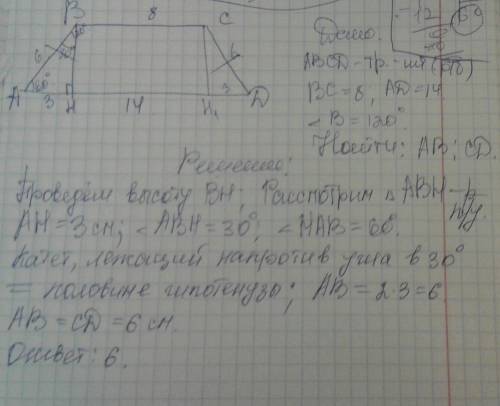 B 8 C
6 6
A 60° 3 H 14 H₁ 3 D
-12
69
Дано:
ABCD - тр.
BC = 8, AD = 14
∠B = 120°
Найти: AB; CD.
Решение:
Проведём высоту BH; Рассмотрим △ ABH - п/у.
AH = 3 см; ∠ABH = 30°; ∠HAB = 60°.
Катет, лежащий напротив угла в 30°
= половине гипотенузы; AB = 2·3 = 6
AB = CD = 6 см.
Ответ: 6.